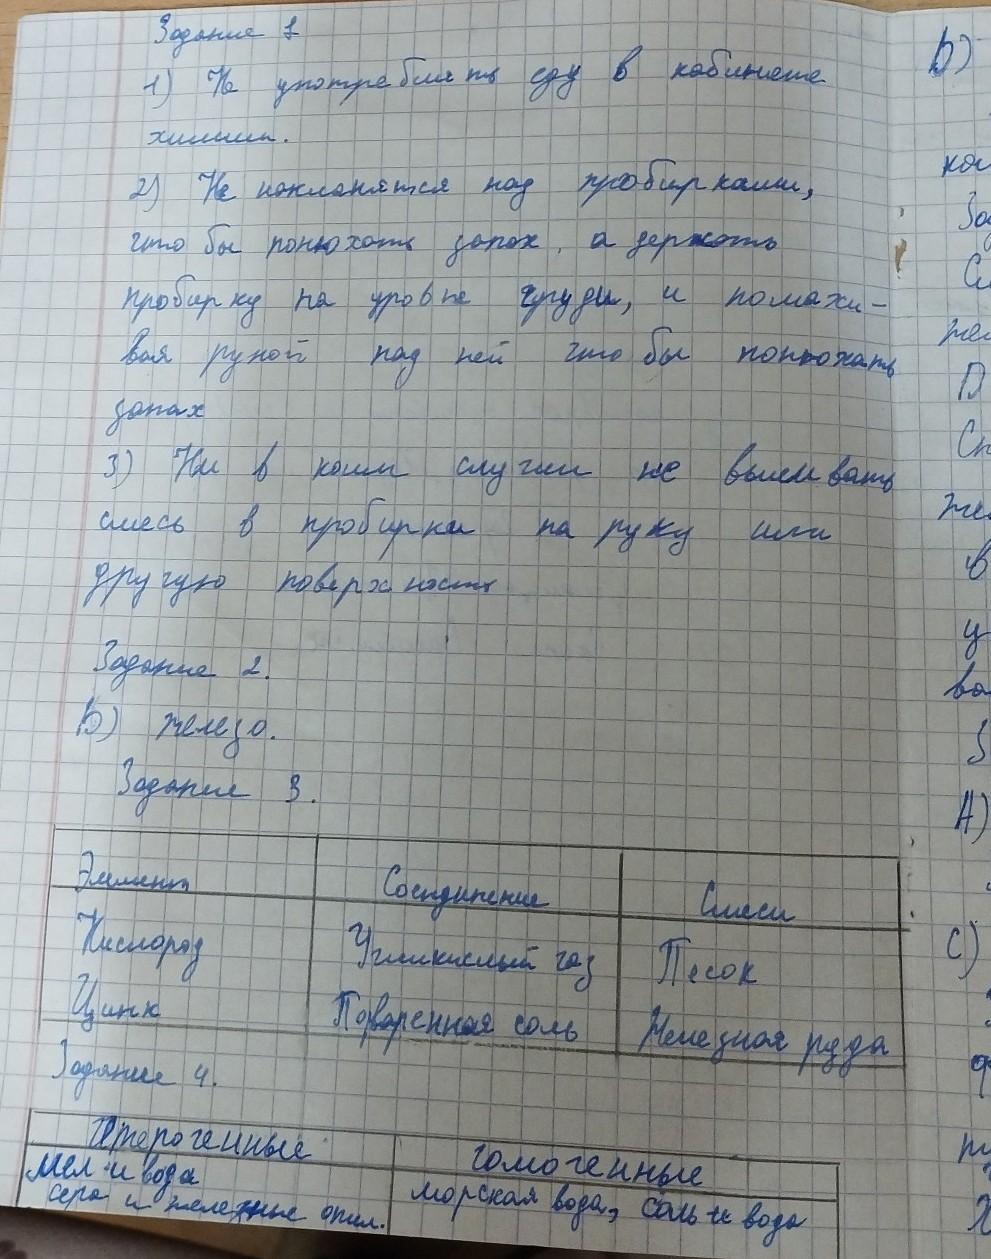 Задание 1
1) Не употреблять еду в кабинете
химии.
2) Не наклонятся над пробирками,
что бы понюхать запах, а держать
пробирку на уровне груди, и помахи-
вая рукой над ней что бы понюхать
запах
3) Ни в коем случии не выливать
смесь в пробирки на руку или
другую поверхность
Задание 2.
B) железо.
Задание 3.
Элемент Соединение Смеси
Кислород Угликислый газ Песок
Цинк Поваренная соль Железная руда
Задание 4.
Гетерогенные гомогенные
Мел и вода морская вода, соль и вода
сера и железные опил.
D)
A)
C)